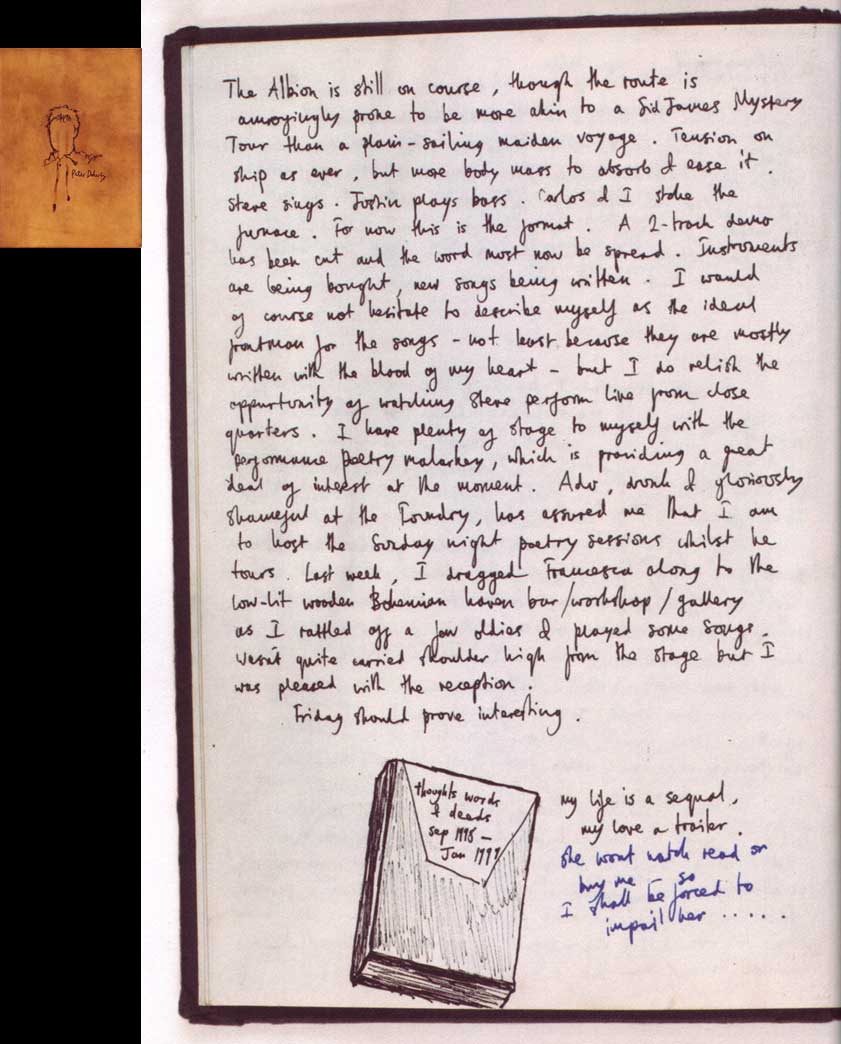 Peter Doherty
The Albion is still on course, though the route is
annoyingly prone to be more akin to a Sid James Mystery
Tour than a plain-sailing maiden voyage. Tension on
ship as ever, but more body mass to absorb & ease it.
Steve sings. Justin plays bass. Carlos & I stoke the
furnace. For now this is the format. A 2-track demo
has been cut and the word must now be spread. Instruments
are being bought, new songs being written. I would
of course not hesitate to describe myself as the ideal
frontman for the songs - not least because they are mostly
written with the blood of my heart - but I do relish the
oppurtunity of watching Steve perform live from close
quarters. I have plenty of stage to myself with the
performance poetry malarkey, which is providing a great
deal of interest at the moment. Adw, drunk & gloriously
shameful at the Foundry, has assured me that I am
to host the Sunday night poetry sessions whilst he
tours. Last week, I dragged Francesca along to the
low-lit wooden Bohemian haven bar/workshop/gallery
as I rattled off a few oldies & played some songs.
Wasn't quite carried shoulder high from the stage but I
was pleased with the reception.
Friday should prove interesting.
thoughts words
& deeds
sep 1998 -
Jan 1999
my life is a sequal,
my love a trailer.
She wont watch read or
buy me - so
I shall be forced to
impail her .....